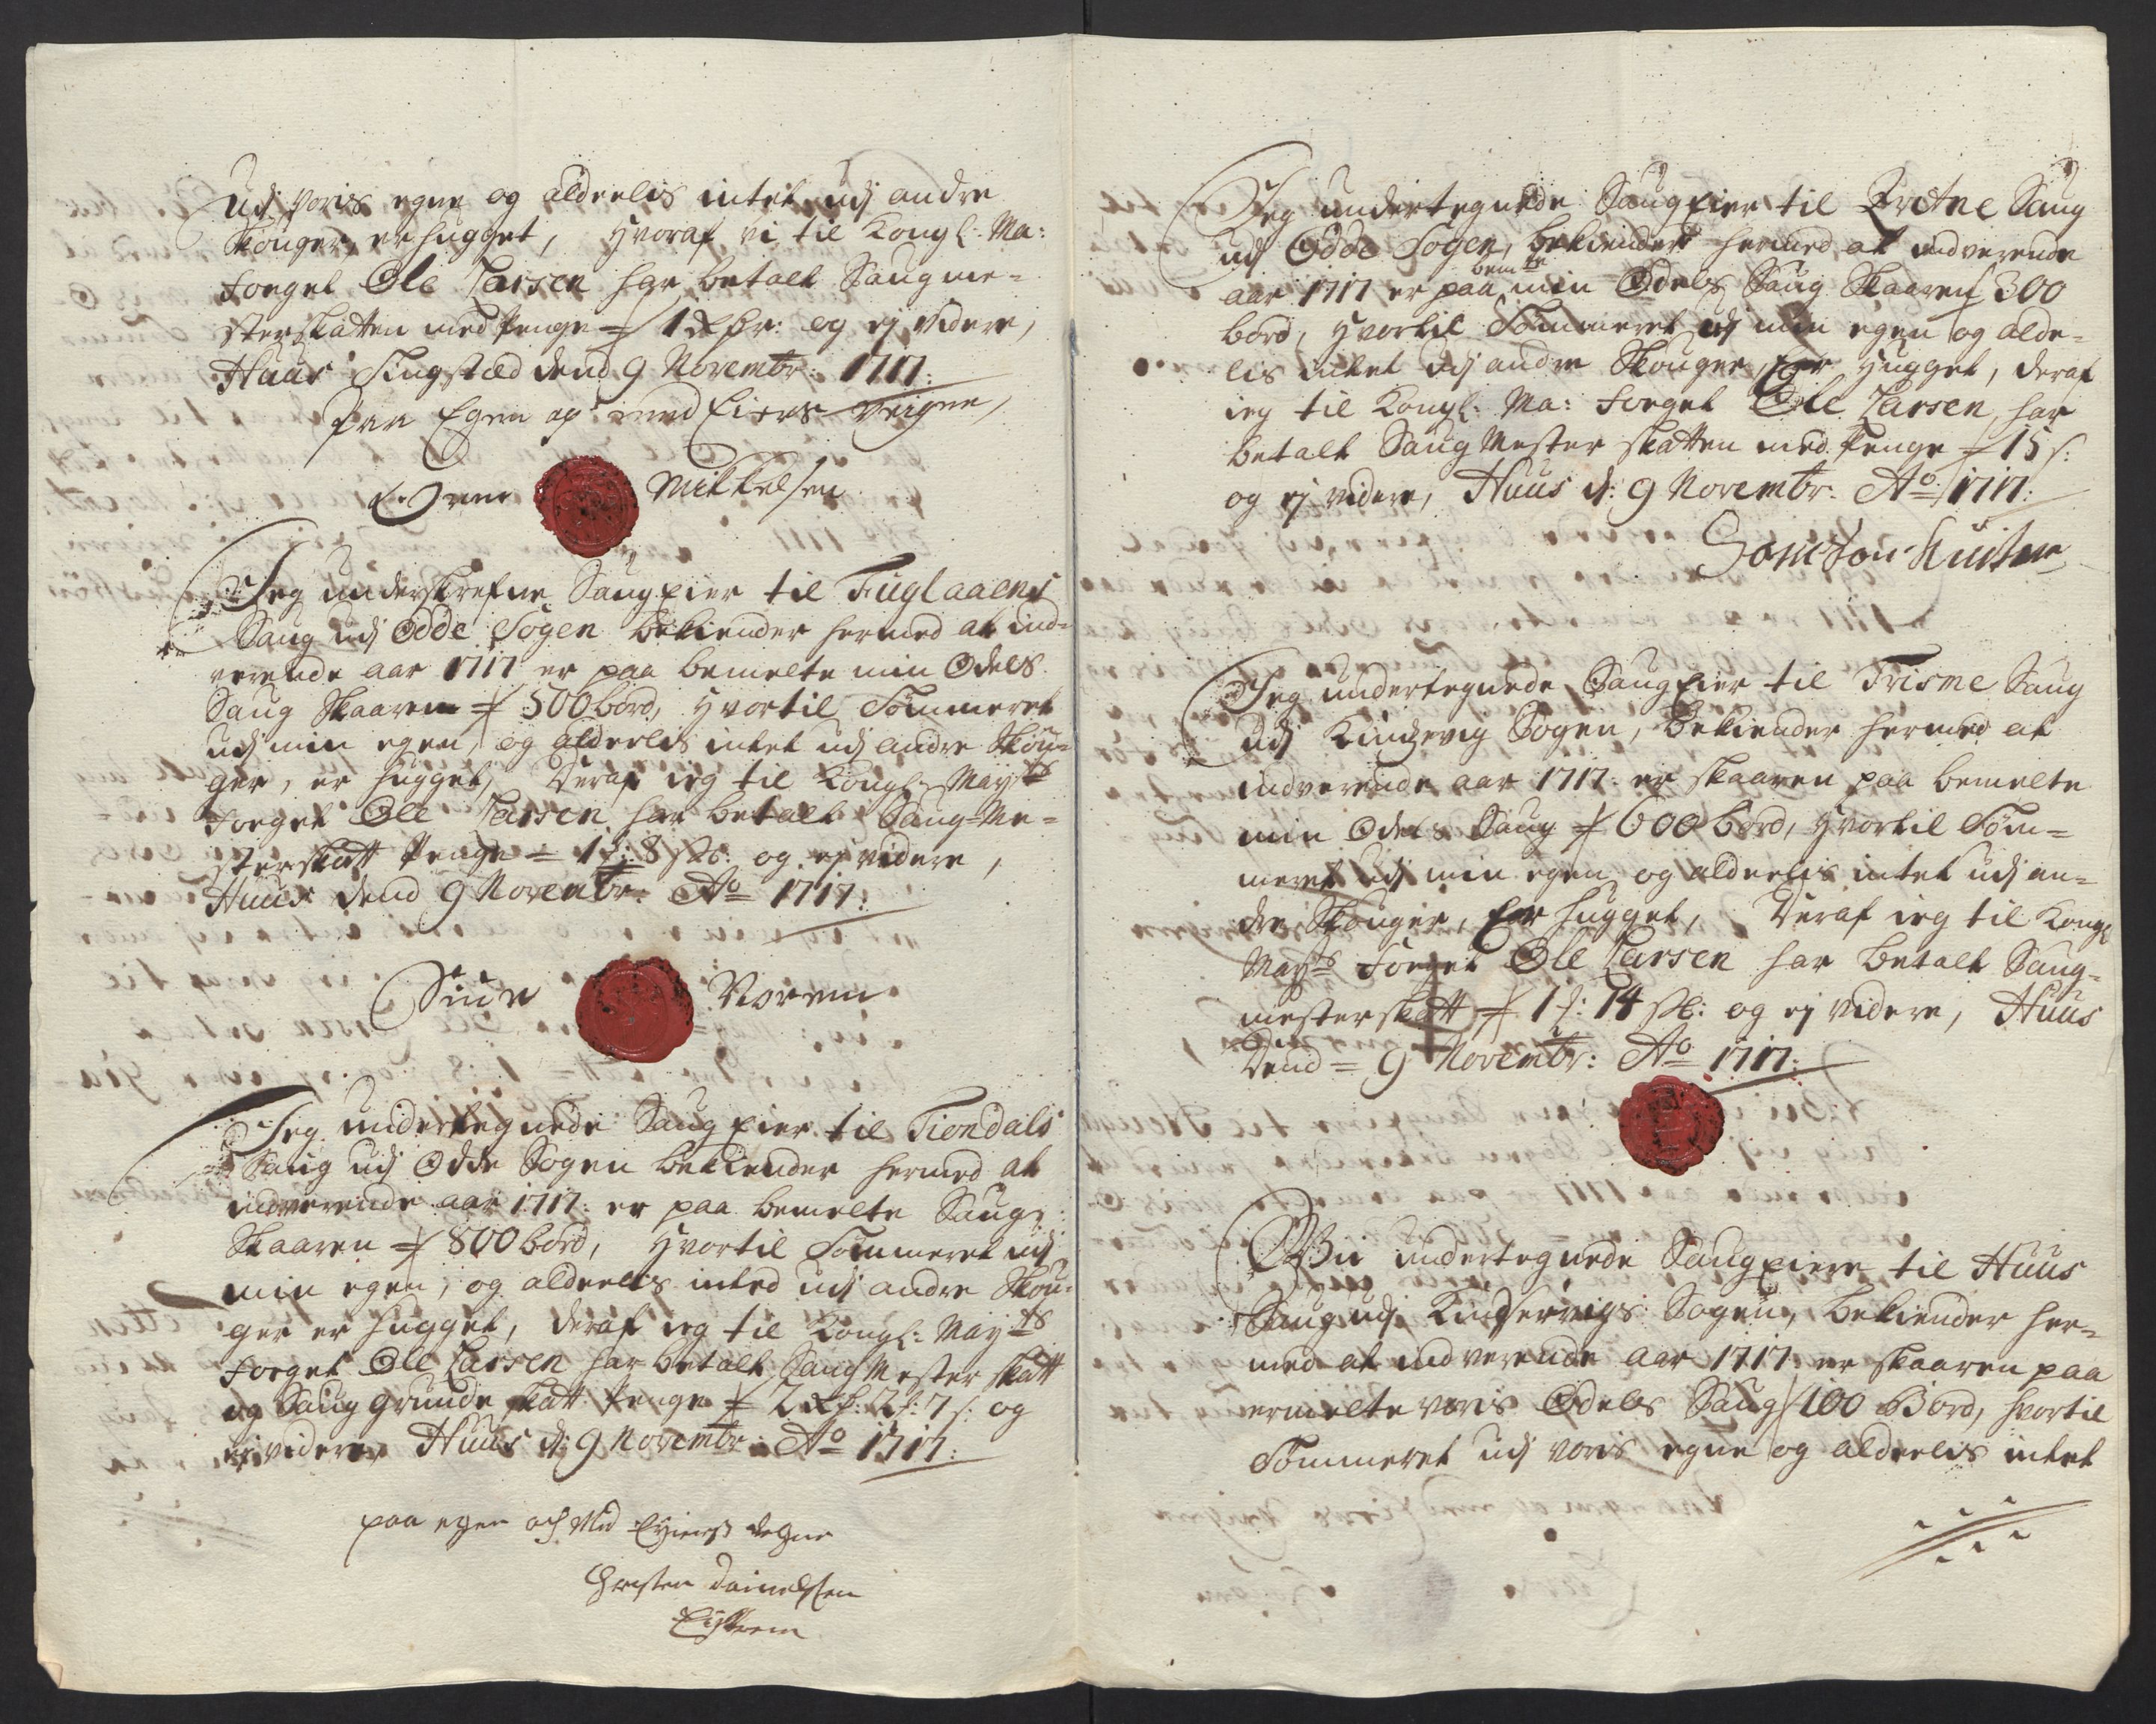 udj voris egne og alderlis intet udj andre
Skouger, er hugget, hvoraf vi til Kongl: Ma:
Foeget Ole Larsen har betalt Saugme-
sterskatten med Penge = 1 Rdr: og ej videre,
Huus Tingstæd dend 9 Novembr: 1717:
Paa Egen og med Eiers Veigne,
Mikkelsen
Jeg underskrefne Saugeier til Fuglaaens
Saug udj Odde Sogen bekiender hermed at ind-
værende aar 1717 er paa bemelte min Odels
Saug Skaaren = 500 bord, hvortil Tømmeret
udj min egen, og alderlis intet udj andre Skou-
ger, er hugget, Deraf ieg til Kongl: Mayts
Foeget Ole Larsen har betalt Saug-Me-
sterskatt Penge = 1 f: 8 s: og ej videre,
Huus dend 9 Novembr: Ao 1717:
Jeg undertegnede Saugeier til Tiondals
Saug udj Odde Sogen bekiender hermed at
indværende aar 1717: er paa bemelte Saug
Skaaren = 800 bord, hvortil Tømmeret udj
min egen, og alderlis inted udj andre Skou-
ger er hugget, deraf ieg til Kongl: Mayts
Foeget Ole Larsen har betalt Saug Mester skatt
og Saug grunde skatt Penge = 2 Rd: 2 f: 7 s: og
ej videre, Huus d: 9 Novembr: Ao 1717:
paa egen och Med Eyiers Vegne
Christen Danielsen
Jeg undertegnede Saugeier til Sau͏g
udj Odde Sogen, bekiender hermed, at indværende
aar 1717 er paa bemte min Odels Saug Skaaren 300
bord, hvortil Tømmeret udj min egen og alde-
lis intet udj andre Skouger, Eer hugget, deraf
ieg til Kongl: Ma: Foeget Ole Larsen, har
betalt Saug Mester skatten med Penge = 15 s:
og ej videre, Huus d: 9 Novembr: Ao 1717:
Jeg undertegnede Saugeier til Trisme Saug
udj Kindzevig Sogen, bekiender hermed at
indværende aar 1717: er skaaren paa bemelte
min Odels Saug = 600 bord, hvortil Tøm-
meret udj min egen og alderlis intet udj an-
dre Skouger, Eer hugget, Deraf ieg til Kongl
Mayts Foeget Ole Larsen har betalt Saug-
mesterskatt = 1 f: 14 s: og ej videre, Huus
Dend = 9 Novembr: Ao 1717:
Wii undertegnede Saugeiere til Huus
Saug udj Kindservigs Sogen, bekiender her-
med at indværende aar 1717 er skaaren paa
ermelte voris Odels Saug 100 Bord, hvortil
Tømmeret udj voris egne og alderlis intet